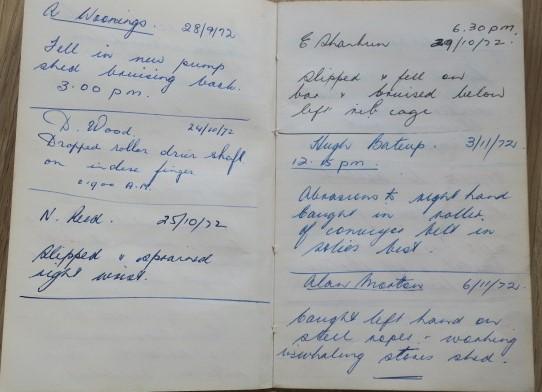 A Woonings. 28/9/72
Fell in new pump
shed bruising back.
3.00 pm.
D. Wood. 24/10/72
Dropped roller drier shaft
on index finger
0900 A.M.
N. Reed. 25/10/72
Slipped & sprained
right wrist.
6.30 pm.
E 29/10/72.
Slipped & fell on
bar & bruised below
left rib cage
Hugh Bateup. 3/11/72
12. 15 pm.
Abrasions to right hand
Caught in roller
of conveyor belt in
belt.
Alan Morton 6/11/72.
Caught left hand on
steel ropes - working
stores shed.